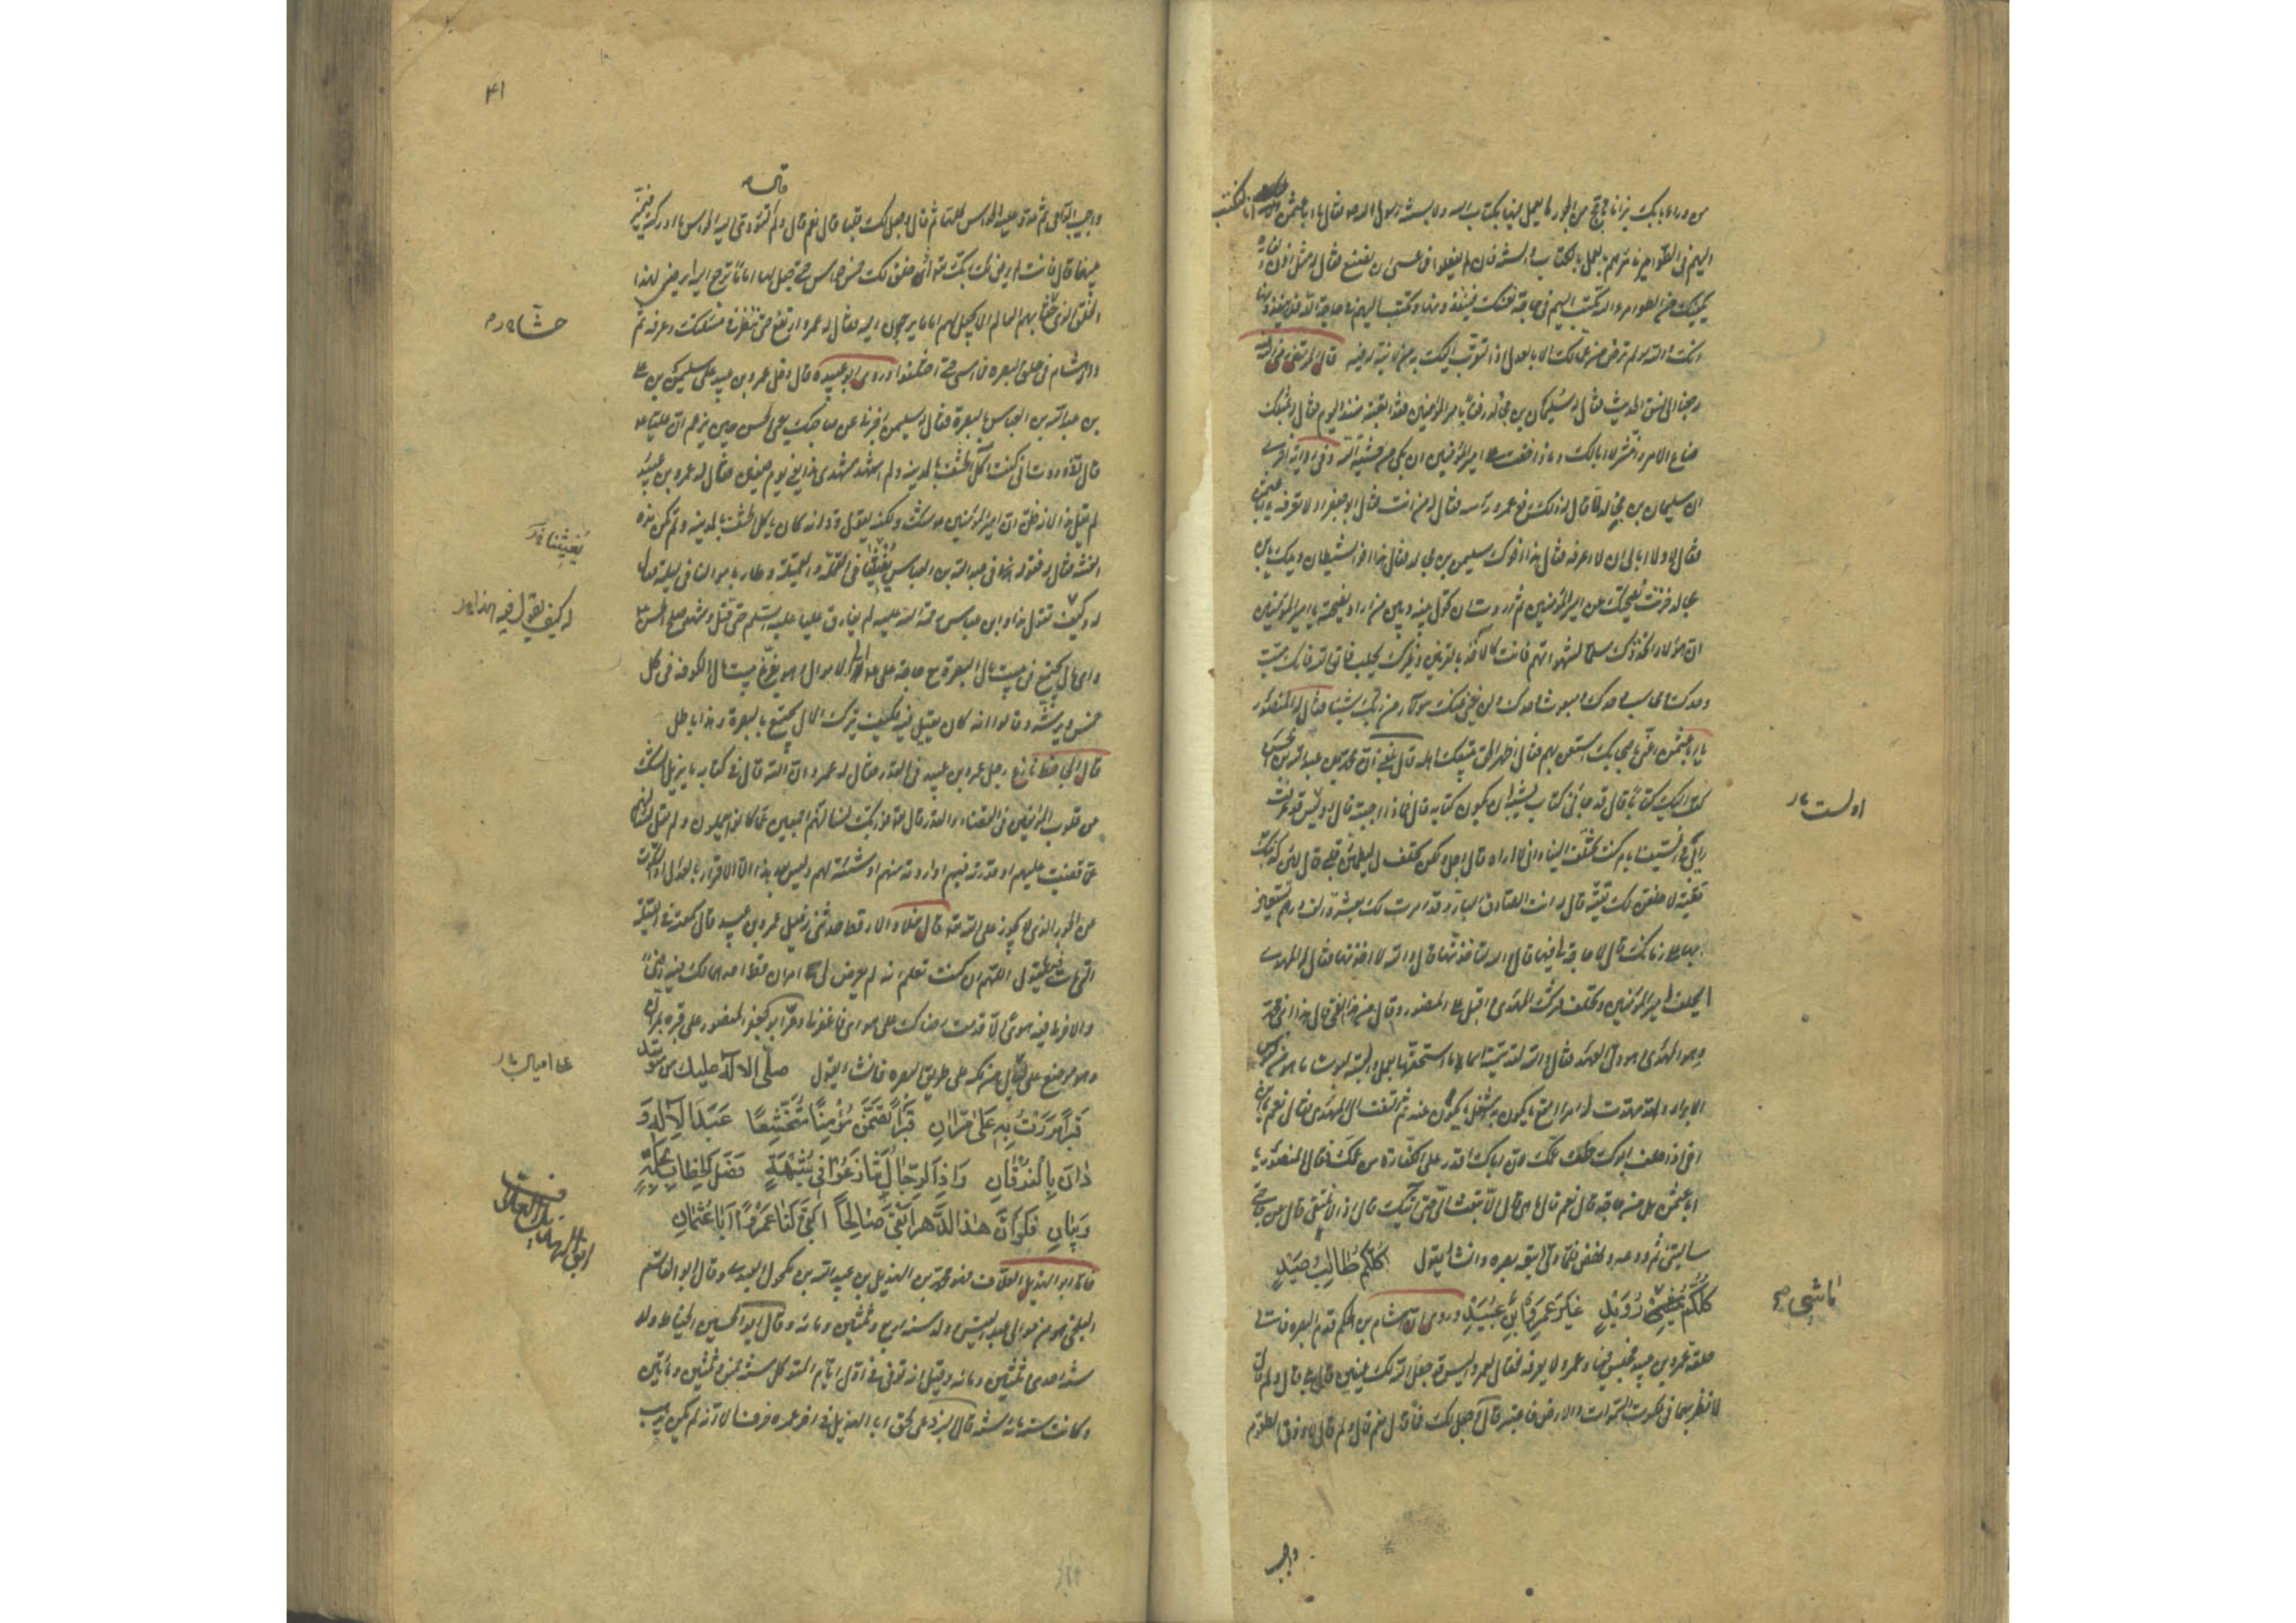 من وراء بابك نيرانا تأجج من الجور ما يعمل فيها بكتاب الله ولا بسنة رسول الله فقال يا ابا عثمن انا اكتب
اليهم في الطوامير نأمرهم بالعمل بالكتاب والسنة فان لم يفعلوا فما عسى ان نصنع فقال له مثل اذن الفارة
يجزيك من الطوامير والله تكتب اليهم في حاجة نفسك فينفذونها وتكتب اليهم في حاجة الله فلا ينفذونها
انك والله لو لم ترض من عمالك الا بالعدل اذا لتقرب اليك به من لا نية له فيه قال المرتضى رضي الله عنه
رجعنا الى نسق الحديث فقال له سليمان بن مجالد رفقا بامير المؤمنين فقد اتعبته منذ اليوم فقال له بمثلك
ضاع الامر وانتشر لا ابا لك وماذا خفت على امير المؤمنين ان بكى من خشية الله وفي رواية اخرى
ان سليمان بن مجالد لما قال له ذلك رفع عمرو رأسه فقال له من انت فقال ابو جعفر اولا تعرفه يا ابا عثمن
فقال لا ولا ابالي ان لا اعرفه فقال هذا اخوك سليمن بن مجالد فقال هذا اخو الشيطان ويلك يا بن
مجالد خزنت نصيحتك عن امير المؤمنين ثم اردت ان تحول بينه وبين من اراد نصيحته يا امير المؤمنين
ان هؤلاء اتخذوك سلما لشهواتهم فانت كالاخذ بالقرنين وغيرك يحلب فاتق الله فانك ميت
وحدك ومحاسب وحدك ومبعوث وحدك ولن يغني عنك هؤلاء من ربك شيئا فقال له المنصور
يا ابا عثمن اعني باصحابك استعن بهم فقال اظهر الحق يتبعك اهله قال بلغني ان محمد بن عبد الله بن الحسن
كتب اليك كتابا قال قد جاءني كتاب يشبه ان يكون كتابه قال فماذا اجبته قال او ليس قد عرفت
رأيي في السيف ايام كنت تختلف الينا واني لا اراه قال اجل ولكن تحلف لي ليطمئن قلبي قال لئن كذبتك
تقية لاحلفن لك تقية قال له انت الصادق البار وقد امرت لك بعشرة الف درهم تستعين
بها على زمانك قال لا حاجة لي فيها قال والله لتأخذنها قال والله لا اخذتها فقال له المهدي
ايحلف امير المؤمنين وتحلف فترك المهدي واقبل على المنصور وقال من هذا الفتى قال هذا ابني محمد
وهو المهدي وهو ولي العهد فقال والله لقد سميته اسما ما استحقه بعمل والبسته لبوسا ما هو من لبوس
الابرار ولقد مهدت له امرا امتع ما يكون به اشغل ما يكون عنه ثم التفت الى المهدي فقال نعم يا ابن
اخي اذا حلف ابوك حلف عمك لان اباك اقدر على الكفارة من عمك فقال المنصور يا
ابا عثمن هل من حاجة قال نعم قال ما هي قال لا تبعث الي حتى آتيك قال اذا لا نلتقي قال عن حاجتي
سالتني ثم ودعه ونهض فلما ولى اتبعه بصره وانشا يقول كلكم طالب صيد
كلكم يمشي رويد غير عمرو بن عبيد وروي ان هشام بن الحكم قدم البصرة فاتى
حلقة عمرو بن عبيد فجلس فيها وعمرو لا يعرفه فقال لعمرو اليس قد جعل الله لك عينين قال بلى قال ولم قال
لانظر بهما في ملكوت السموات والارض فاعتبر قال وجعل لك فما قال نعم قال ولم قال لاذوق الطعوم
واجيب
اولست
ماشي
٤١
قال
واجيب الداعي ثم عدد عليه الحواس كلها ثم قال وجعل لك قلبا قال نعم قال ولم قال لتؤدي اليه الحواس ما ادركته فيميز
بينها قال فانت لم يرض لك ربك تعالى ان خلق لك خمس حواس حتى جعل لها اماما ترجع اليه ايرضى لهذا
الخلق الذي حشا بهم العالم الا يجعل لهم اماما يرجعون اليه فقال له عمرو ارتفع حتى ننظر في مسئلتك وعرفه ثم
دار هشام في حلق البصرة فما امسى حتى اختلفوا وروى ابو عبيدة قال دخل عمرو بن عبيد على سليمن بن علي
بن عبد الله بن العباس بالبصرة فقال له سليمن اخبرني عن صاحبك يعني الحسن حين يزعم ان عليا
قال لوددت اني كنت آكل الحشف بالمدينة ولم اشهد مشهدي هذا يعني يوم صفين فقال له عمرو بن عبيد
لم يقل هذا لانه ظن ان امير المؤمنين شك ولكنه يقول ود انه كان يأكل الحشف بالمدينة ولم تكن هذه
الفتنة فقال له فقوله في عبد الله بن العباس يفتينا في القملة والقميلة وطار باموالنا في ليلة فقال
له وكيف تقول هذا وابن عباس رحمة الله عليه لم يفارق عليا عليه السلم حتى قتل وشهد صلح الحسن
واي مال يجتمع في بيت مال البصرة مع حاجة علي الى الاموال وهو يفرغ بيت مال الكوفة في كل
خميس ويرشه وقالوا انه كان يقيل فيه فكيف يترك المال يجتمع بالبصرة وهذا باطل
قال الجاحظ نازع رجل عمرو بن عبيد في القدر فقال له عمرو ان الله قال في كتابه ما يزيل الشك
عن قلوب المؤمنين في القضاء والقدر قال تعالى فوربك لنسألنهم اجمعين عما كانوا يعملون ولم يقل لنسألنهم
عما قضيت عليهم او قدرته فيهم او اردته منهم او شئته لهم وليس بعد هذا الا الاقرار بالعدل او السكوت
عن الجور الذي لا يجوز على الله تعالى قال خلاد الارقط حدثني زميل عمرو بن عبيد قال سمعته في الليلة
التي مات فيها يقول اللهم ان كنت تعلم انه لم يعرض لي امران قط احدهما لك فيه رضى
والاخر لي فيه هوى الا قدمت رضاك على هواي فاغفر لي ومر ابو جعفر المنصور على قبره بمران
وهو موضع على ليال من مكة على طريق البصرة فانشا يقول صلى الاله عليك من متوسد
قبرا مررت به على مران قبرا تضمن مؤمنا متخشعا عبد الاله و
دان بالفرقان واذا الرجال تنازعوا في شبهة فصل الخطاب بحكمة
وبيان فلو ان هذا الدهر ابقى صالحا ابقى لنا عمروا ابا عثمان
فاما ابو الهذيل العلاف فهو محمد بن الهذيل بن عبد الله بن مكحول العبدي وقال ابو القاسم
البلخي هو من موالي عبد القيس ولد سنة اربع وثلثين ومائة وقال ابو الحسين الخياط ولد
سنة احدى وثلثين ومائة وقيل انه توفي في اول ايام المتوكل سنة خمس وثلثين ومأتين
وكانت سنه مائة سنة قال البرذعي لحق ابا الهذيل في اخر عمره خرف الا انه لم يكن يذهب
حشا
يفتينا
كيف يقول هذا
على اميال
ابو الهذيل العلاف